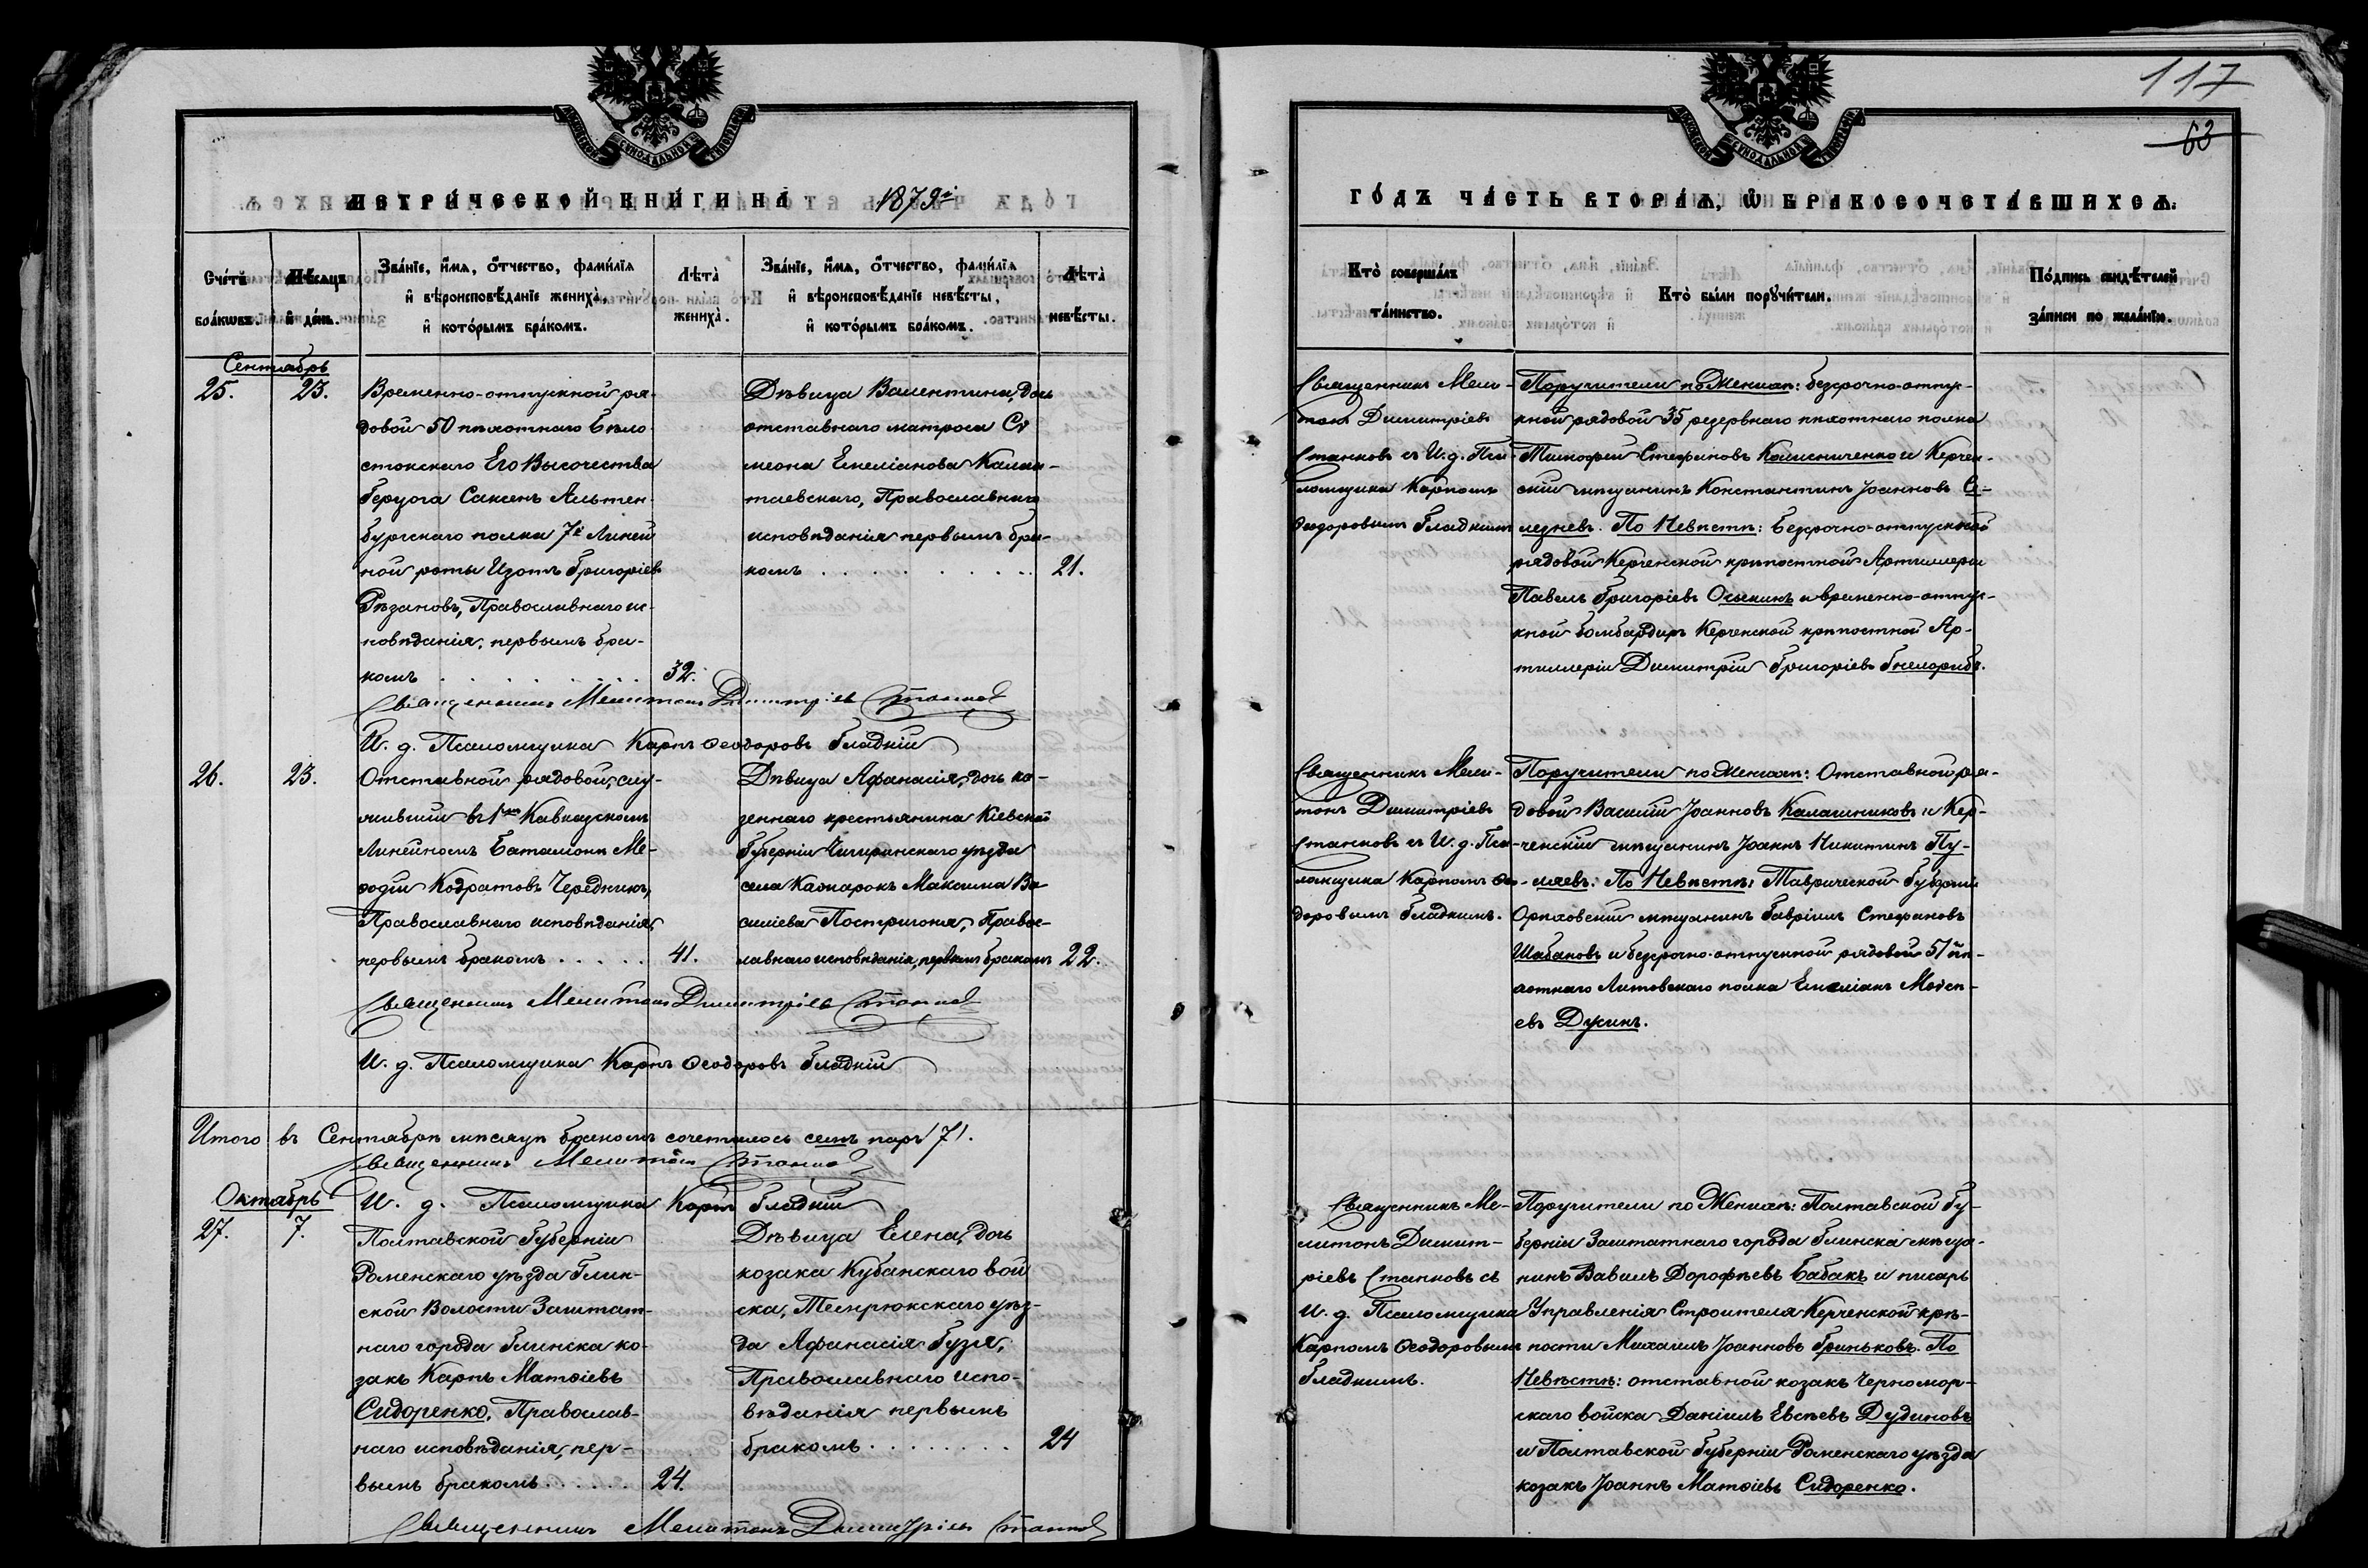 117
63
МЕТРИЧЕСКОЙ КНИГИ НА 1879й
ГОДЪ ЧАСТЬ ВТОРАЯ, Ѡ БРАКОСОЧЕТАВШИХСЯ.
Счетъ браковъ.
Мѣсяцъ и день.
Званіе, имя, отчество, фамилія
и вѣроисповѣданіе жениха,
и которымъ бракомъ.
Лѣта
жениха.
Званіе, имя, отчество, фамилія
и вѣроисповѣданіе невѣсты,
и которымъ бракомъ.
Лѣта
невѣсты.
Кто совершалъ
таинство.
Кто были поручители.
Подпись свидѣтелей
записи по желанію.
Сентябрь
25. 23.
Временно-отпускной ря-
довой 50 пѣхотнаго Бѣло
стокскаго Его Высочества
Герцога Саксенъ Альтен-
бургскаго полка 7й Линей
ной роты Изотъ Григоріевъ
Рѣзановъ, Православнаго ис-
повѣданія, первымъ бра-
комъ . . . . . . 32.
Дѣвица Валентина, дочь
отставнаго матроса Си
меона Емеліанова
Православнаго
исповѣданія первымъ бра-
комъ . . . . . . . 21.
Священникъ Мели-
тонъ Димитріевъ
Станковъ съ И. д. Пса-
ломщика Карпомъ
Ѳеодоровымъ Гладкимъ
Поручители по Женихѣ: безсрочно-отпус-
кной рядовой 35 резервнаго пѣхотнаго полка
Тимофей Стефановъ Колисниченко и Керчен-
скій мѣщанинъ Константинъ Іоанновъ Се-
лезневъ. По Невѣстѣ: Безсрочно-отпускной
рядовой Керченской крѣпостной Артиллеріи
Павелъ Григоріевъ Осыкинъ и временно-отпус-
кной бомбардиръ Керченской крѣпостной Ар-
тиллеріи Димитрій Григоріевъ
Священникъ Мелитонъ Димитріевъ Станковъ
И. д. Псаломщика Карпъ Ѳеодоровъ Гладкій
26. 23.
Отставной рядовой, слу-
жившій въ 1мъ Кавказскомъ
Линейномъ Баталіонѣ Ме-
ѳодій Кодратовъ Чередникъ,
Православнаго исповѣданія,
первымъ бракомъ . . . . . 41.
Дѣвица Афанасія, дочь ка-
зеннаго крестьянина Кіевской
Губерніи Чигиринскаго уѣзда
села Максима Ва
силіева Постригоня, Правос-
лавнаго исповѣданія, первымъ бракомъ 22.
Священникъ Мели-
тонъ Димитріевъ
Станковъ съ И. д. Пса-
ломщика Карпомъ Ѳео-
доровымъ Гладкимъ.
Поручители по Женихѣ: Отставной ря-
довой Василій Іоанновъ Калашниковъ и Кер-
ченскій мѣщанинъ Іоаннъ Никитинъ Пу-
ляевъ: По Невѣстѣ: Таврической Губерніи
Орѣховскій мѣщанинъ Гавріилъ Стефановъ
Шабановъ и безсрочно-отпускной рядовой 51 пѣ-
хотнаго Литовскаго полка Емеліанъ Моѵсе-
евъ Дусинъ.
Священникъ Мелитонъ Димитріевъ Станковъ
И. д. Псаломщика Карпъ Ѳеодоровъ Гладкій
Итого въ Сентябрѣ мѣсяцѣ бракомъ сочеталось семь паръ /7/.
Священникъ Мелитонъ Станковъ
И. д. Псаломщика Карпъ Гладкій
Октябрь
27. 7.
Полтавской Губерніи
Роменскаго уѣзда Глин-
ской Волости Заштат-
наго города Глинска ко-
закъ Карпъ Матѳіевъ
Сидоренко, Православ-
наго исповѣданія, пер-
вымъ бракомъ . . . . . . 24.
Дѣвица Елена, дочь
козака Кубанскаго вой
ска, Темрюкскаго уѣз-
да Афанасія Гузя,
Православнаго испо-
вѣданія первымъ
бракомъ . . . . . . . . 24
Священникъ Ме-
литонъ Димит-
ріевъ Станковъ съ
И. д. Псаломщика
Карпомъ Ѳеодоровымъ
Гладкимъ.
Поручители по Женихѣ: Полтавской Гу-
берніи Заштатнаго города Глинска мѣща-
нинъ Вавилъ Дорофѣевъ Бабакъ и писарь
Управленія Строителя Керченской крѣ-
пости Михаилъ Іоанновъ Гриньковъ. По
Невѣстѣ: отставной козакъ Черномор-
скаго войска Даніилъ Евсѣевъ Дудиновъ
и Полтавской Губерніи Роменскаго уѣзда
козакъ Іоаннъ Матѳіевъ Сидоренко.
Священникъ Мелитонъ Димитріевъ Станковъ